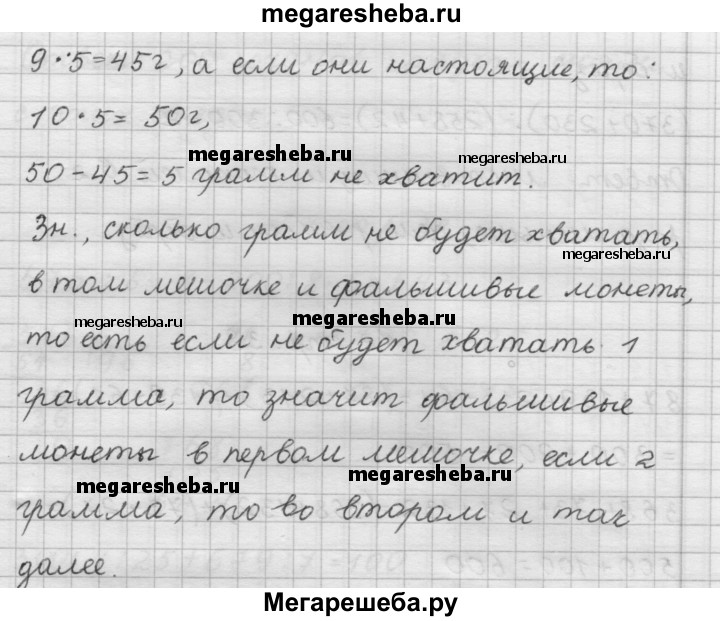 megaresheba.ru
9·5=45г, а если они настоящие, то:
10·5= 50г,
megaresheba.ru megaresheba.ru
50-45=5 грамм не хватит.
Зн., сколько грамм не будет хватать,
megaresheba.ru
в том мешочке и фальшивые монеты,
megaresheba.ru megaresheba.ru
то есть если не будет хватать 1
грамма, то значит фальшивые
монеты в первом мешочке, если 2
megaresheba.ru megaresheba.ru
грамма, то во втором и так
далее.
Мегарешеба.ру